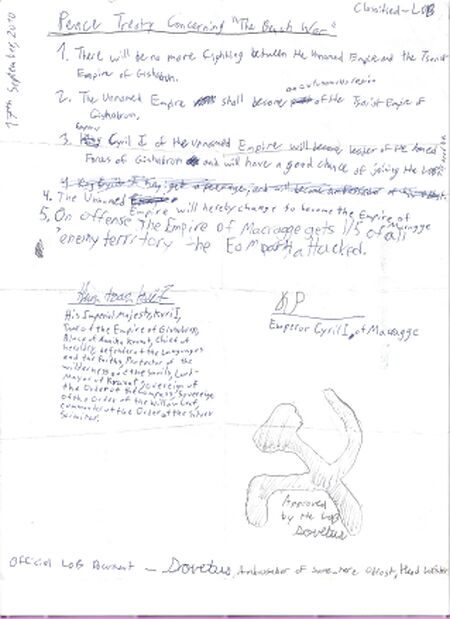 Classified - LOB
17th September, 2010
Peace Treaty Concerning "The Bench War"
1. There will be no more fighting between the Unnamed Empire and the Tsarist
Empire of Gishabrun.
an autonomous region
2. The Unnamed Empire shall become of the Tsarist Empire of
Gishabrun.
3. Cyril I of the Unnamed Empire will become leader of the Armed
Forces of Gishabrun and will have a good chance of joining the
4. The Unnamed Empire will hereby change to become the Empire of
Macragge
5. On offense The Empire of Macragge gets 1/5 of all
enemy territory the EoM partly attacked.
His Imperial Majesty, Kuri I,
Tsar of the Empire of Gishabrun,
Chief of
heraldry, defender of the Languages
and the Faiths, Protector of the
wilderness and the Lord-
Mayor of Sovereign of
the Order of the Compass, Sovereign
of the Order of the Willow Leaf,
Commander of the Order of the Silver
Emperor Cyril I, of Macragge
Approved
by the LOB
Dovetus
Official LOB Document - Dovetus, Ambassador of Somewhere Head